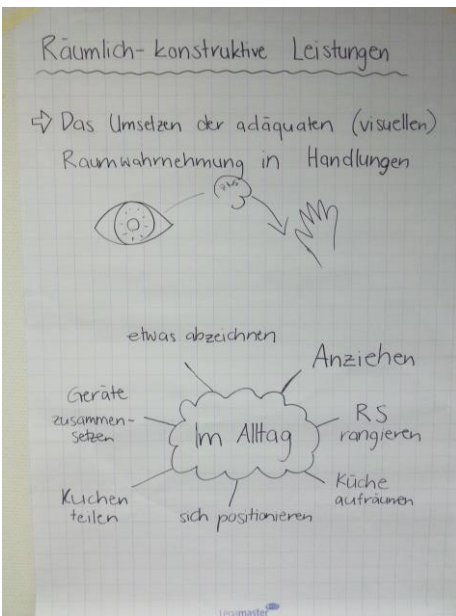 Räumlich-konstruktive Leistungen
⇨ Das Umsetzen der adäquaten (visuellen)
Raumwahrnehmung in Handlungen
etwas abzeichnen
Anziehen
Geräte
zusammen-
setzen
Im Alltag
RS
rangieren
Kuchen
teilen
sich positionieren
Küche
aufräumen
Legamaster